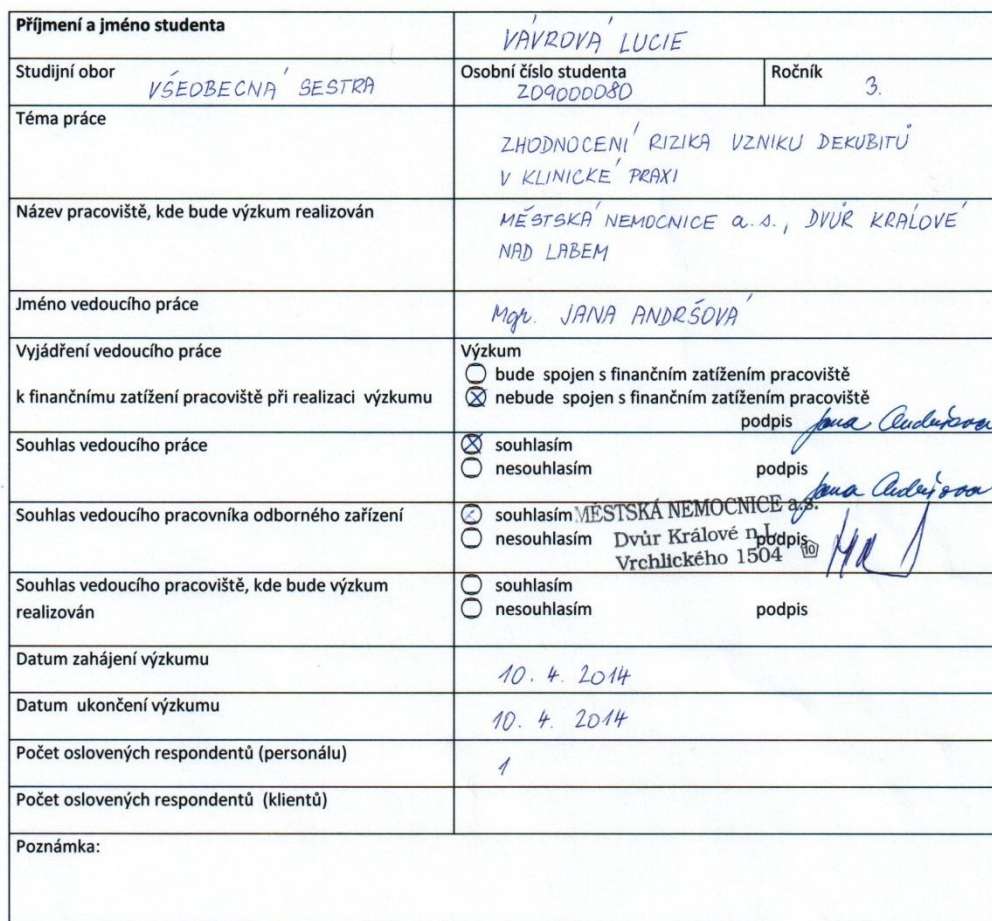 Příjmení a jméno studenta
VÁVROVÁ LUCIE
Studijní obor
VŠEOBECNÁ SESTRA
Osobní číslo studenta
Z09000080
Ročník
3.
Téma práce
ZHODNOCENÍ RIZIKA VZNIKU DEKUBITŮ
V KLINICKÉ PRAXI
Název pracoviště, kde bude výzkum realizován
MĚSTSKÁ NEMOCNICE a.s., DVŮR KRÁLOVÉ
NAD LABEM
Jméno vedoucího práce
Mgr. JANA ANDRŠOVÁ
Vyjádření vedoucího práce
k finančnímu zatížení pracoviště při realizaci výzkumu
Výzkum
bude spojen s finančním zatížením pracoviště
nebude spojen s finančním zatížením pracoviště
podpis Jana Andršová
Souhlas vedoucího práce
souhlasím
nesouhlasím podpis
Jana Andršová
Souhlas vedoucího pracovníka odborného zařízení
souhlasím
nesouhlasím podpis
MĚSTSKÁ NEMOCNICE a.s.
Dvůr Králové n.L.
Vrchlického 1504 10
Souhlas vedoucího pracoviště, kde bude výzkum
realizován
souhlasím
nesouhlasím podpis
Datum zahájení výzkumu
10. 4. 2014
Datum ukončení výzkumu
10. 4. 2014
Počet oslovených respondentů (personálu)
1
Počet oslovených respondentů (klientů)
Poznámka: